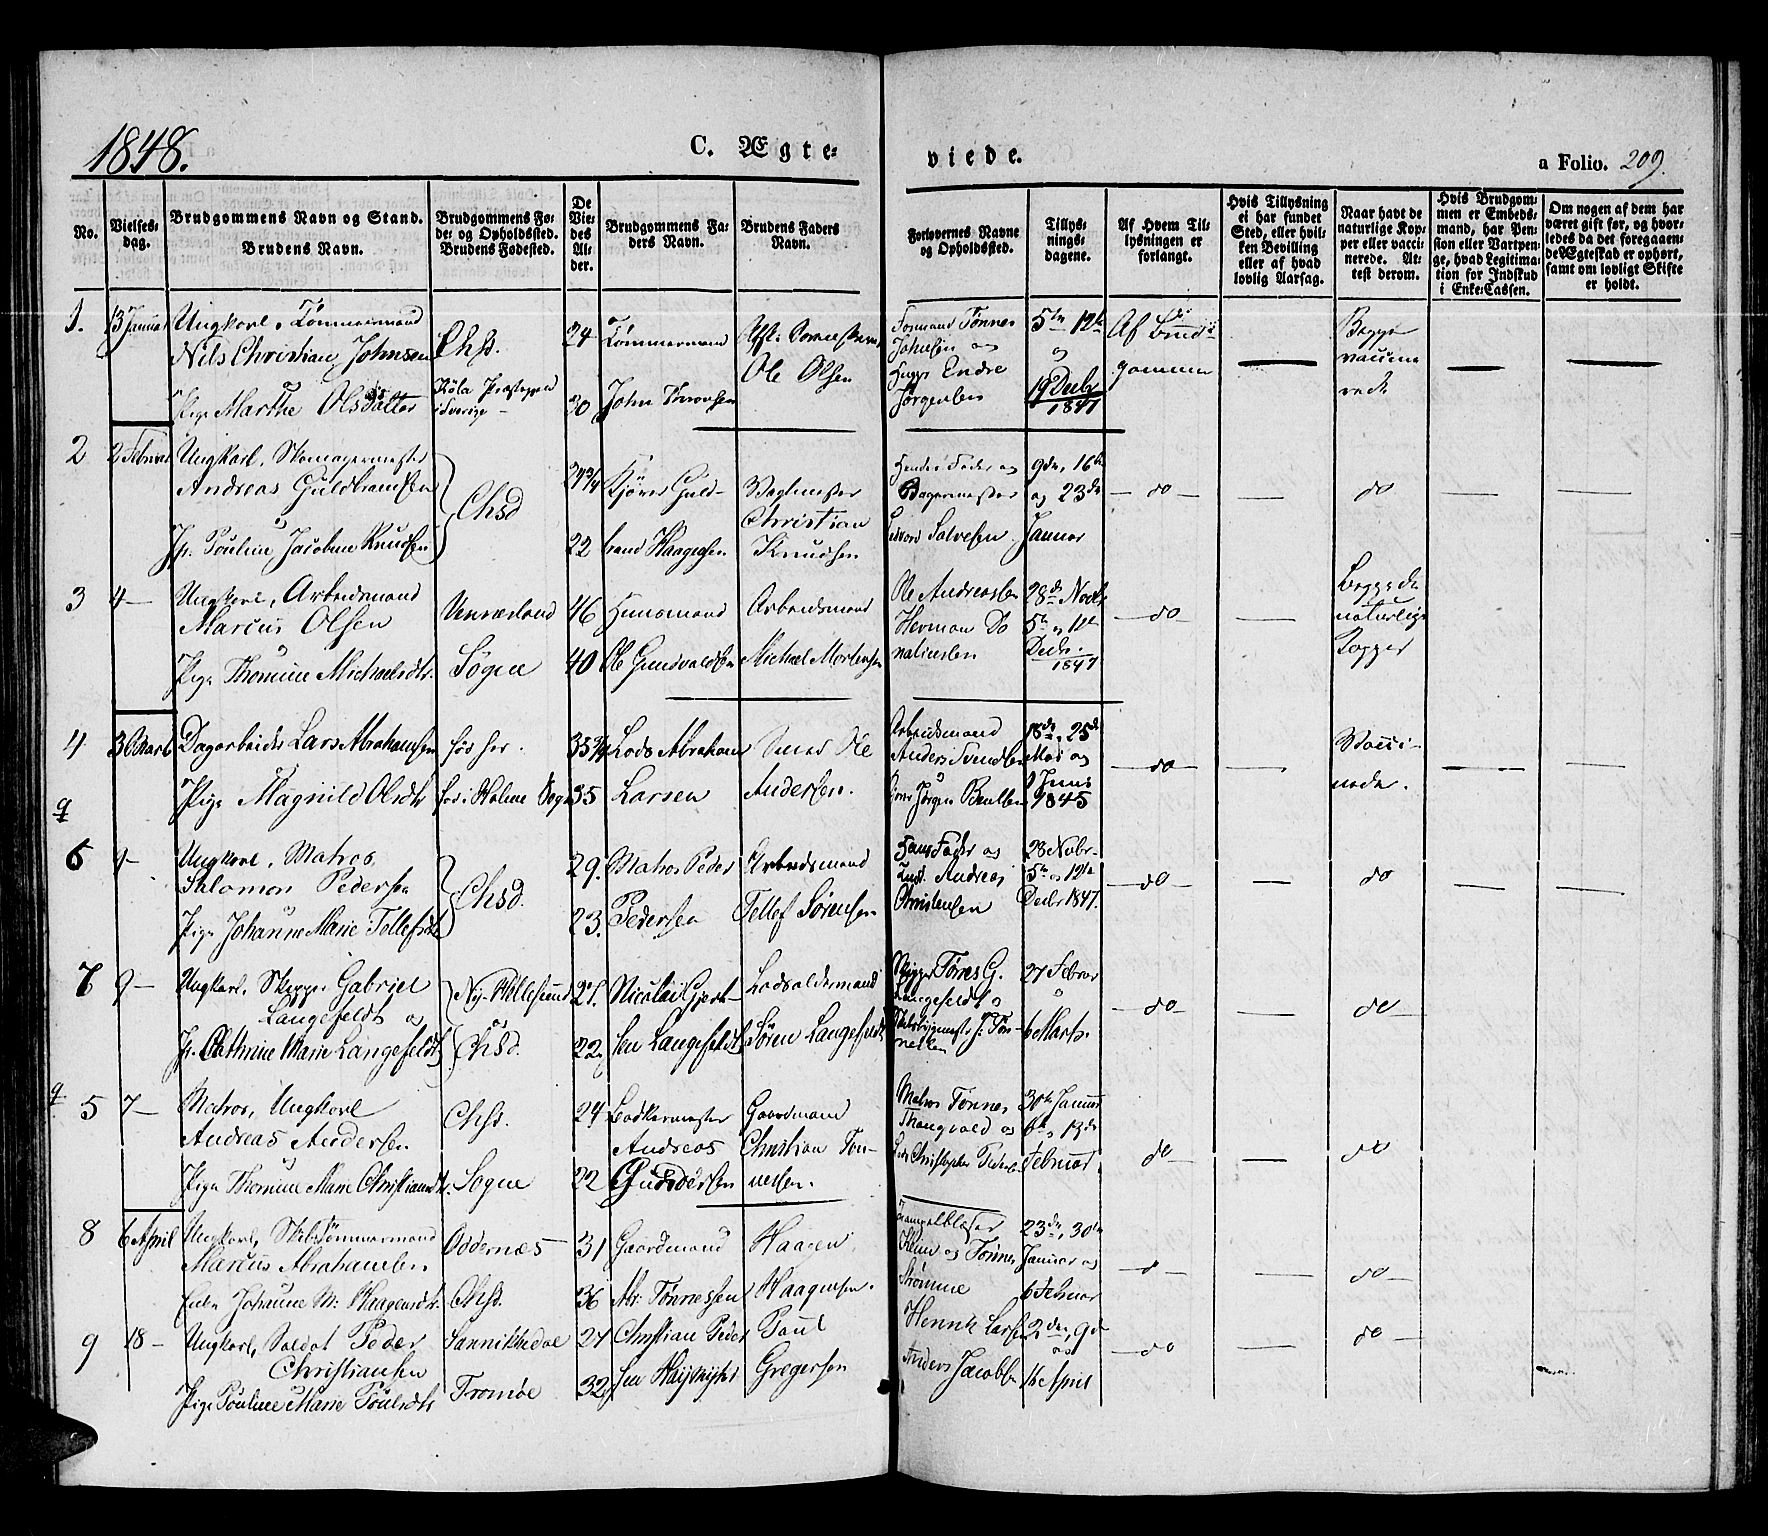 1848.
C. Ægte-
viede.
a Folio. 209.
No.
Vielses-
dag.
Brudgommens Navn og Stand.
Brudens Navn.
Brudgommens Fø-
de- og Opholdssted.
Brudens Fødested.
De
Vie-
des
Al-
der.
Brudgommens Fa-
ders Navn.
Brudens Faders
Navn.
Forlovernes Navne
og Opholdssted.
Tillys-
nings-
dagene.
Af Hvem Til-
lysningen er
forlangt.
Hvis Tillysning
ei har fundet
Sted, eller hvil-
ken Bevilling
eller af hvad
lovlig Aarsag.
Naar havt de
naturlige Kop-
per eller vacci-
nerede. At-
test derom.
Hvis Brudgom-
men er Embeds-
mand, har Pen-
sion eller Vartpen-
ge, hvad Legitima-
tion for Indskud
i Enke-Cassen.
Om nogen af dem har
været gift før, og hvor-
ledes da det foregaaen-
de Ægteskab er ophørt,
samt om lovligt Skifte
er holdt.
1. 13 Januar
Ungkarl, Tømmermand
Nils Christian Johnsen
Pige Marthe Olsdatter
Chsd.
Kjøla Præstegjeld
i Sverige
24
30
Tømmermand
John
Ole Olsen
Formand Tønnes
Johnsen og
Endre
Jørgensen
5te 12te
og
19 Decbr
1847
Af Brud-
gommen
Begge
vaccine
rede
2 2 Februar
Ungkarl, Skomagermester
Andreas Guldbrandsen
Jfr. Pouline Jacobine Knudsen
Chsd
24 3/4
22
Guld-
brand Haagensen
Vagtmester
Christian
Knudsen
Hendes Fader og
Bagermester
Salvesen
9de, 16te
og 23de
Januar
do
do
3 4
Ungkarl, Arbeidsmand
Marcus Olsen
Pige Thomine Michaelsdtr.
Søgne
46
40
Huusmand
Ole Gundvaldsen
Arbeidsmand
Michael Mortensen
Ole Andreassen
Herman Do
natiussen
28de Novbr
5te og 12te
Decbr.
1847
do
Begge de
naturlige
Kopper
4 3 Marts
Dagarbeider Lars Abrahamsen
Pige Magnild Olsdtr
her.
fød i Holme Sogn
35 3/4
35
Lods Abraham
Larsen
Smed Ole
Andersen.
Arbeidsmand
Anders Svendsen
Jørgen Bentsen
18de, 25de
Mai og
1 Juni
1845
do
Vacci-
nede.
6
Ungkarl, Matros
Salomon Pedersen
Pige Johanne Marie Tellefsdtr
Chsd.
29.
23.
Matros Peder
Pedersen
Arbeidsmand
Tellef Sørensen
Hans Fader og
Andreas
Christensen
28 Novbr
5te og 12te
Decbr 1847.
do
do
7 9
Ungkarl, Skipper Gabriel
Langefeldt og
Jfr. Cathrine Marie Langefeldt
Ny-Hellesund
og
Chsd.
27.
22.
Nicolai Gjert-
sen Langefeldt
Lodsoldermand
Søren Langefeldt
Skipper Tønnes G.
Langefeldt og
27 Februar
og
6 Marts.
do
do
5 7
Matros, Ungkarl
Andreas Andersen
Pige Thomine Marie Christiansdtr.
Chsd.
Søgne
24
22
Bødkermester
Andreas
Gundersen
Gaardmand
Christian Tøn-
nessen.
Matros Tønnes
Thangvald og
Christopher Peders
30te Januar
6te og 13de
Februar
do
do
8 6 April
Ungkarl, Skibstømmermand
Marcus Abrahamsen
Enke Johanne M. Haagensdtr.
Oddernæs
Chsd.
31
36
Gaardmand
Abr. Tønnessen
Haagen
Haagensen.
Klim og Tønnes
Strømme
23de, 30te
Januar og
6 Februar
do
do
9 18
Ungkarl, Soldat Peder
Christiansen
Pige Pouline Marie Poulsdtr
Sannikkedal
Tromøe
27
32
Christian Peder
sen
Poul
Gregersen
Henrik Larsen
Anders Jacobsen
2den, 9de
og
16 April
do
do